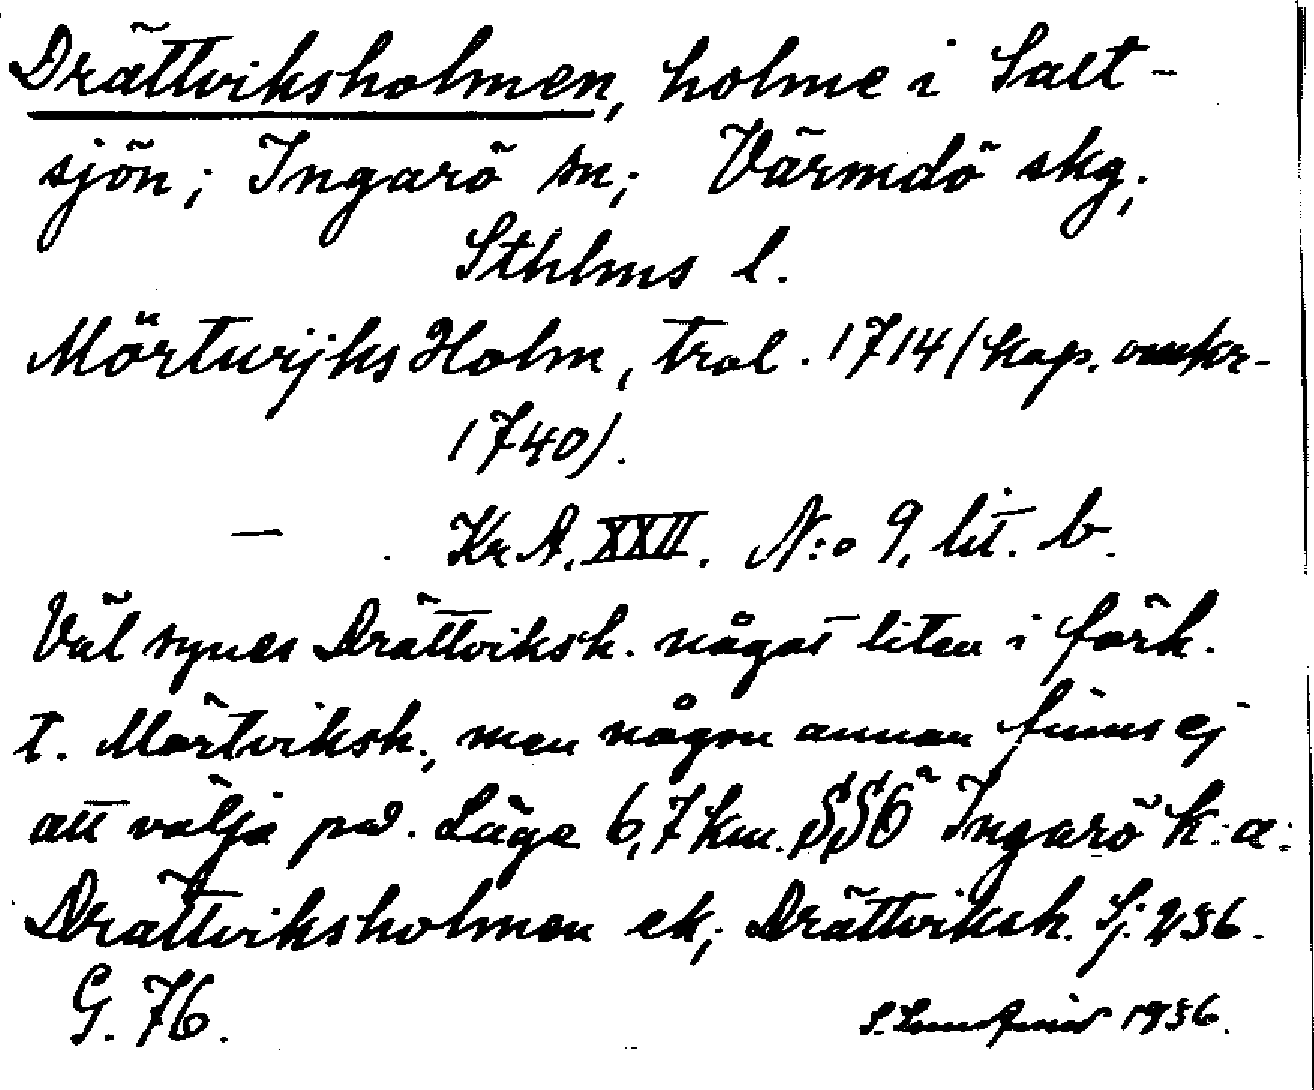 Drättviksholmen, holme i Salt-
sjön; Ingarö sn; Värmdö skg;
Sthlms l.
Mörtwijks Holm, trol. 1714 (kop. omkr.
1740).
— Kr A. XXII. N:o 9, lit. b.
Väl synes Drättviksh. något liten i förh.
t. Mörtviksh., men någon annan finns ej
att välja på. Läge 6,7 km. SSÖ Ingarö k:a:
Drättviksholmen ek; Drättviksh. Sj.
G. 76. 1936.